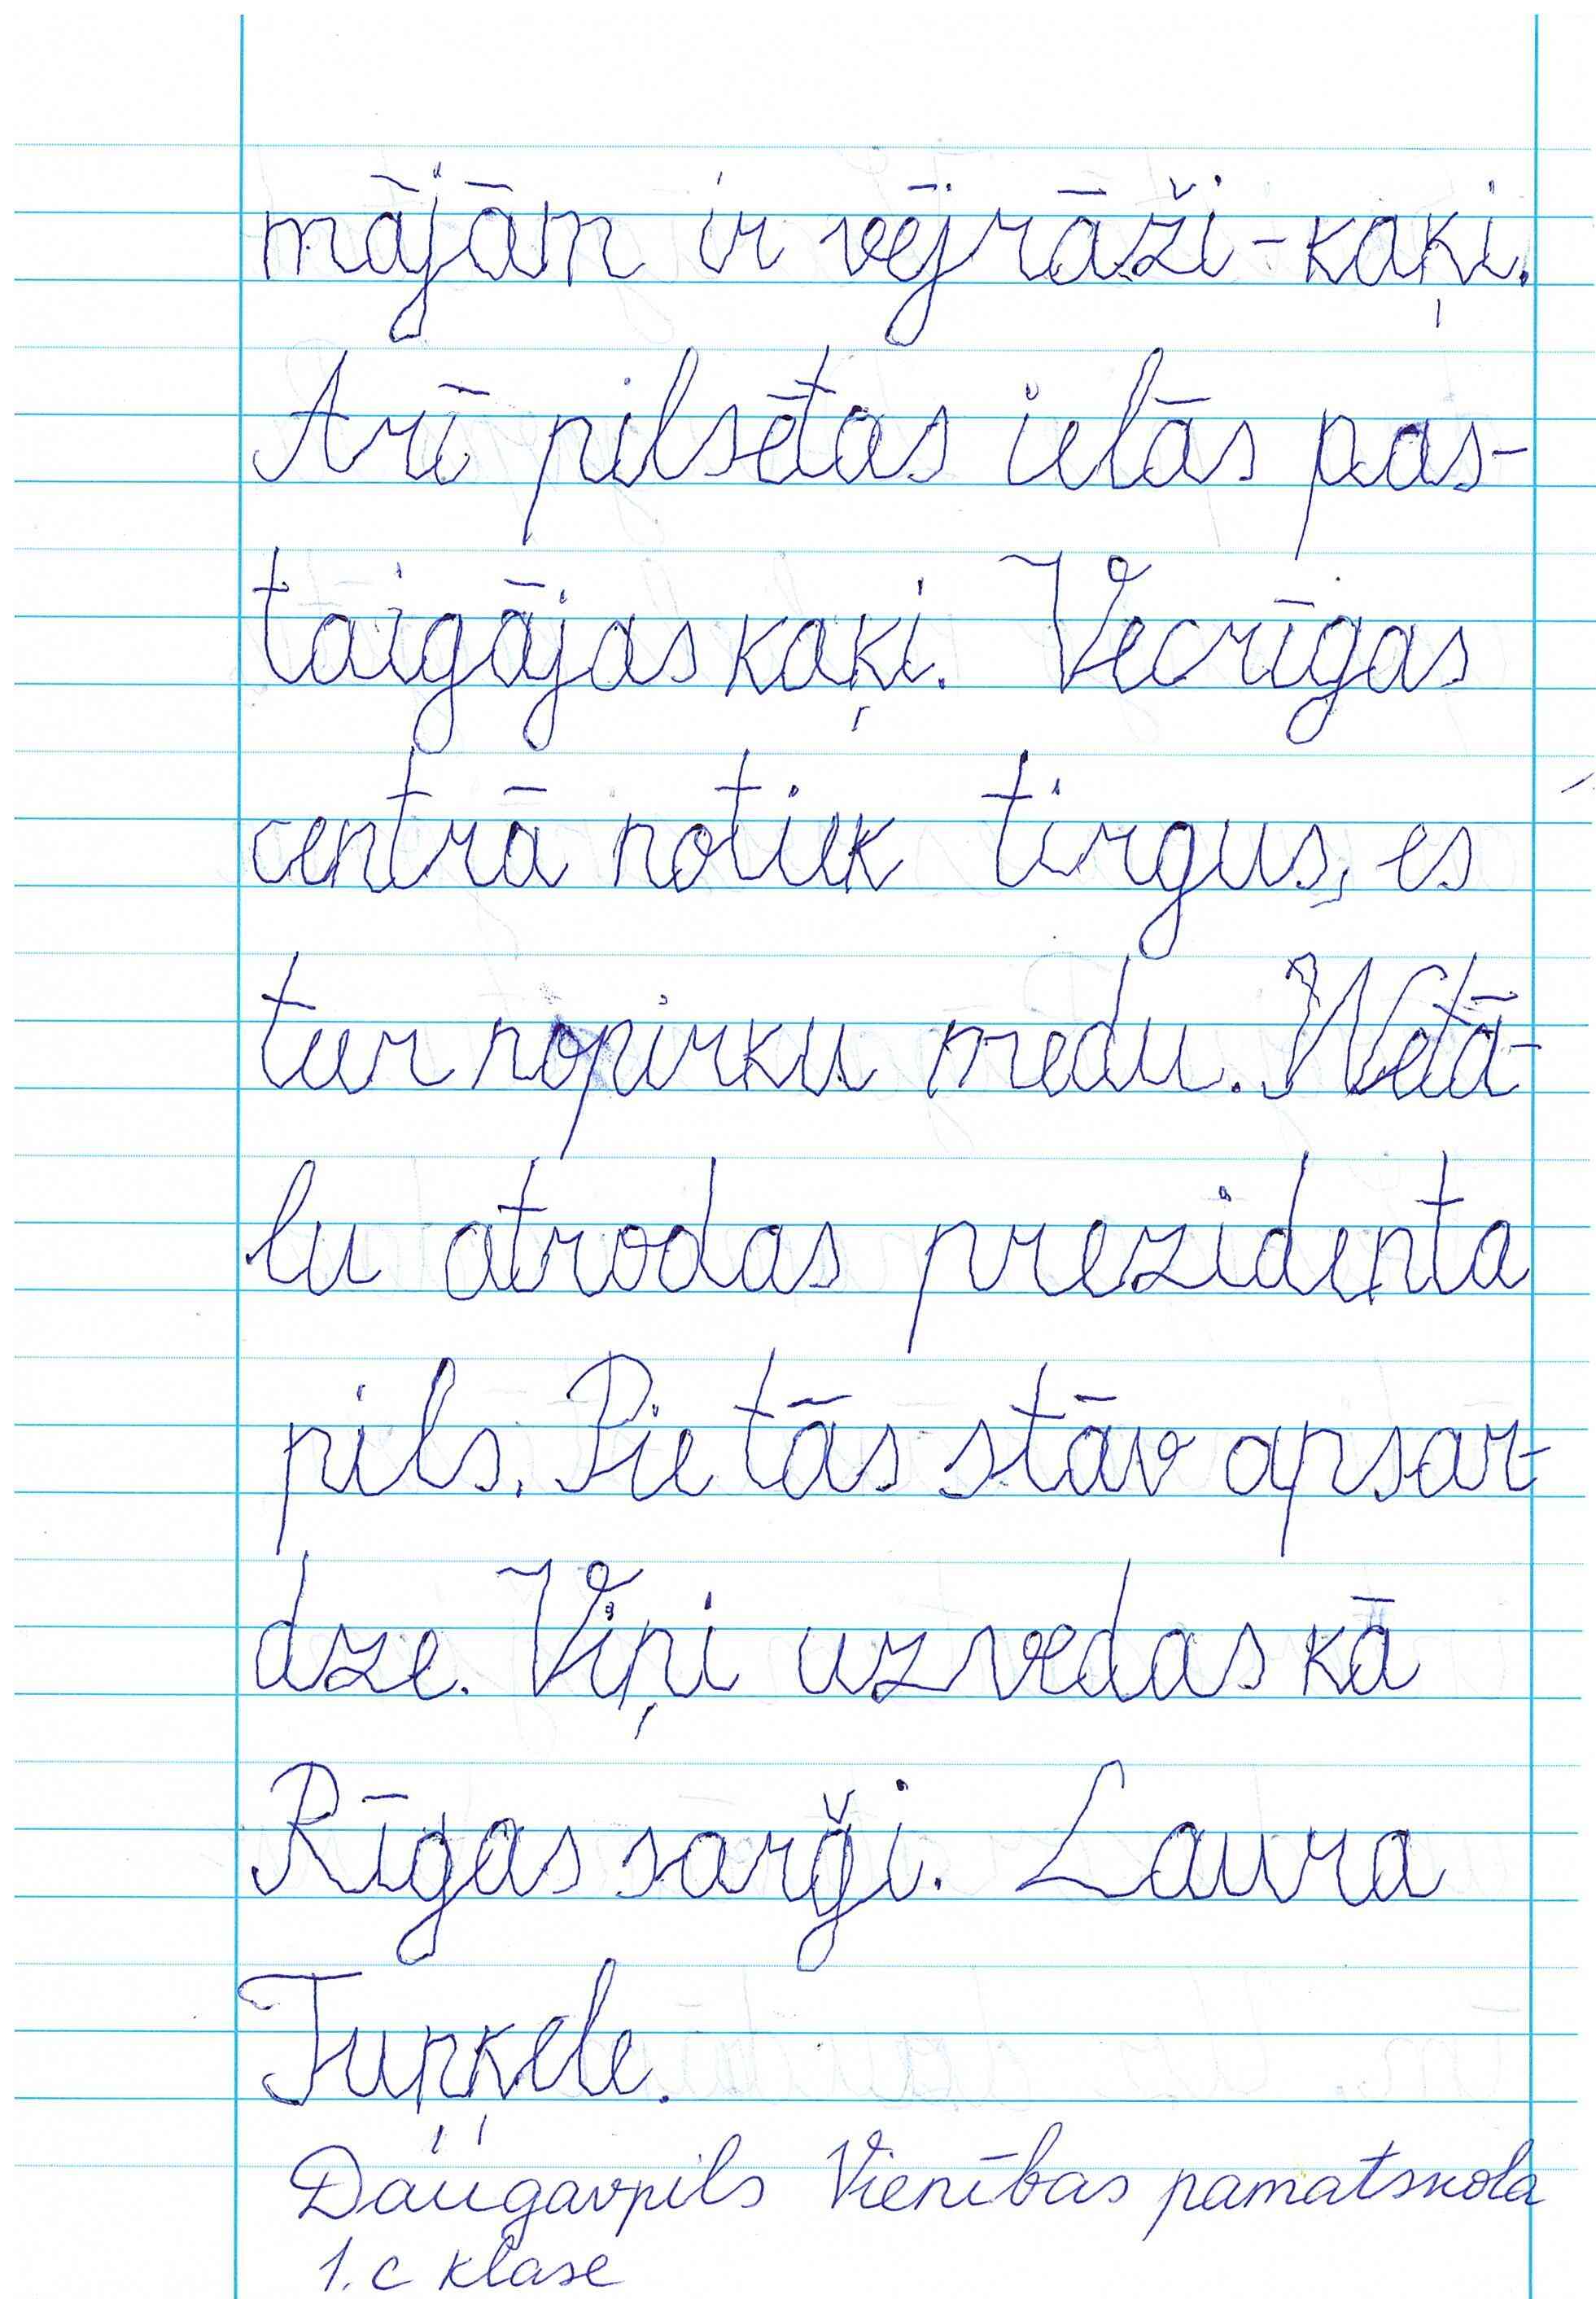 mājām ir vējrāži-kaķi.
Arī pilsētas ielās pas-
taigājas kaķi. Vecrīgas
centrā notiek tirgus, es
tur nopirku medu. Netā-
lu atrodas prezidenta
pils. Pie tās stāv apsar-
dze. Viņi uzvedas kā
Rīgas sarģi. Laura
Tuņķele.
Daugavpils Vienības pamatskola
1. c klase